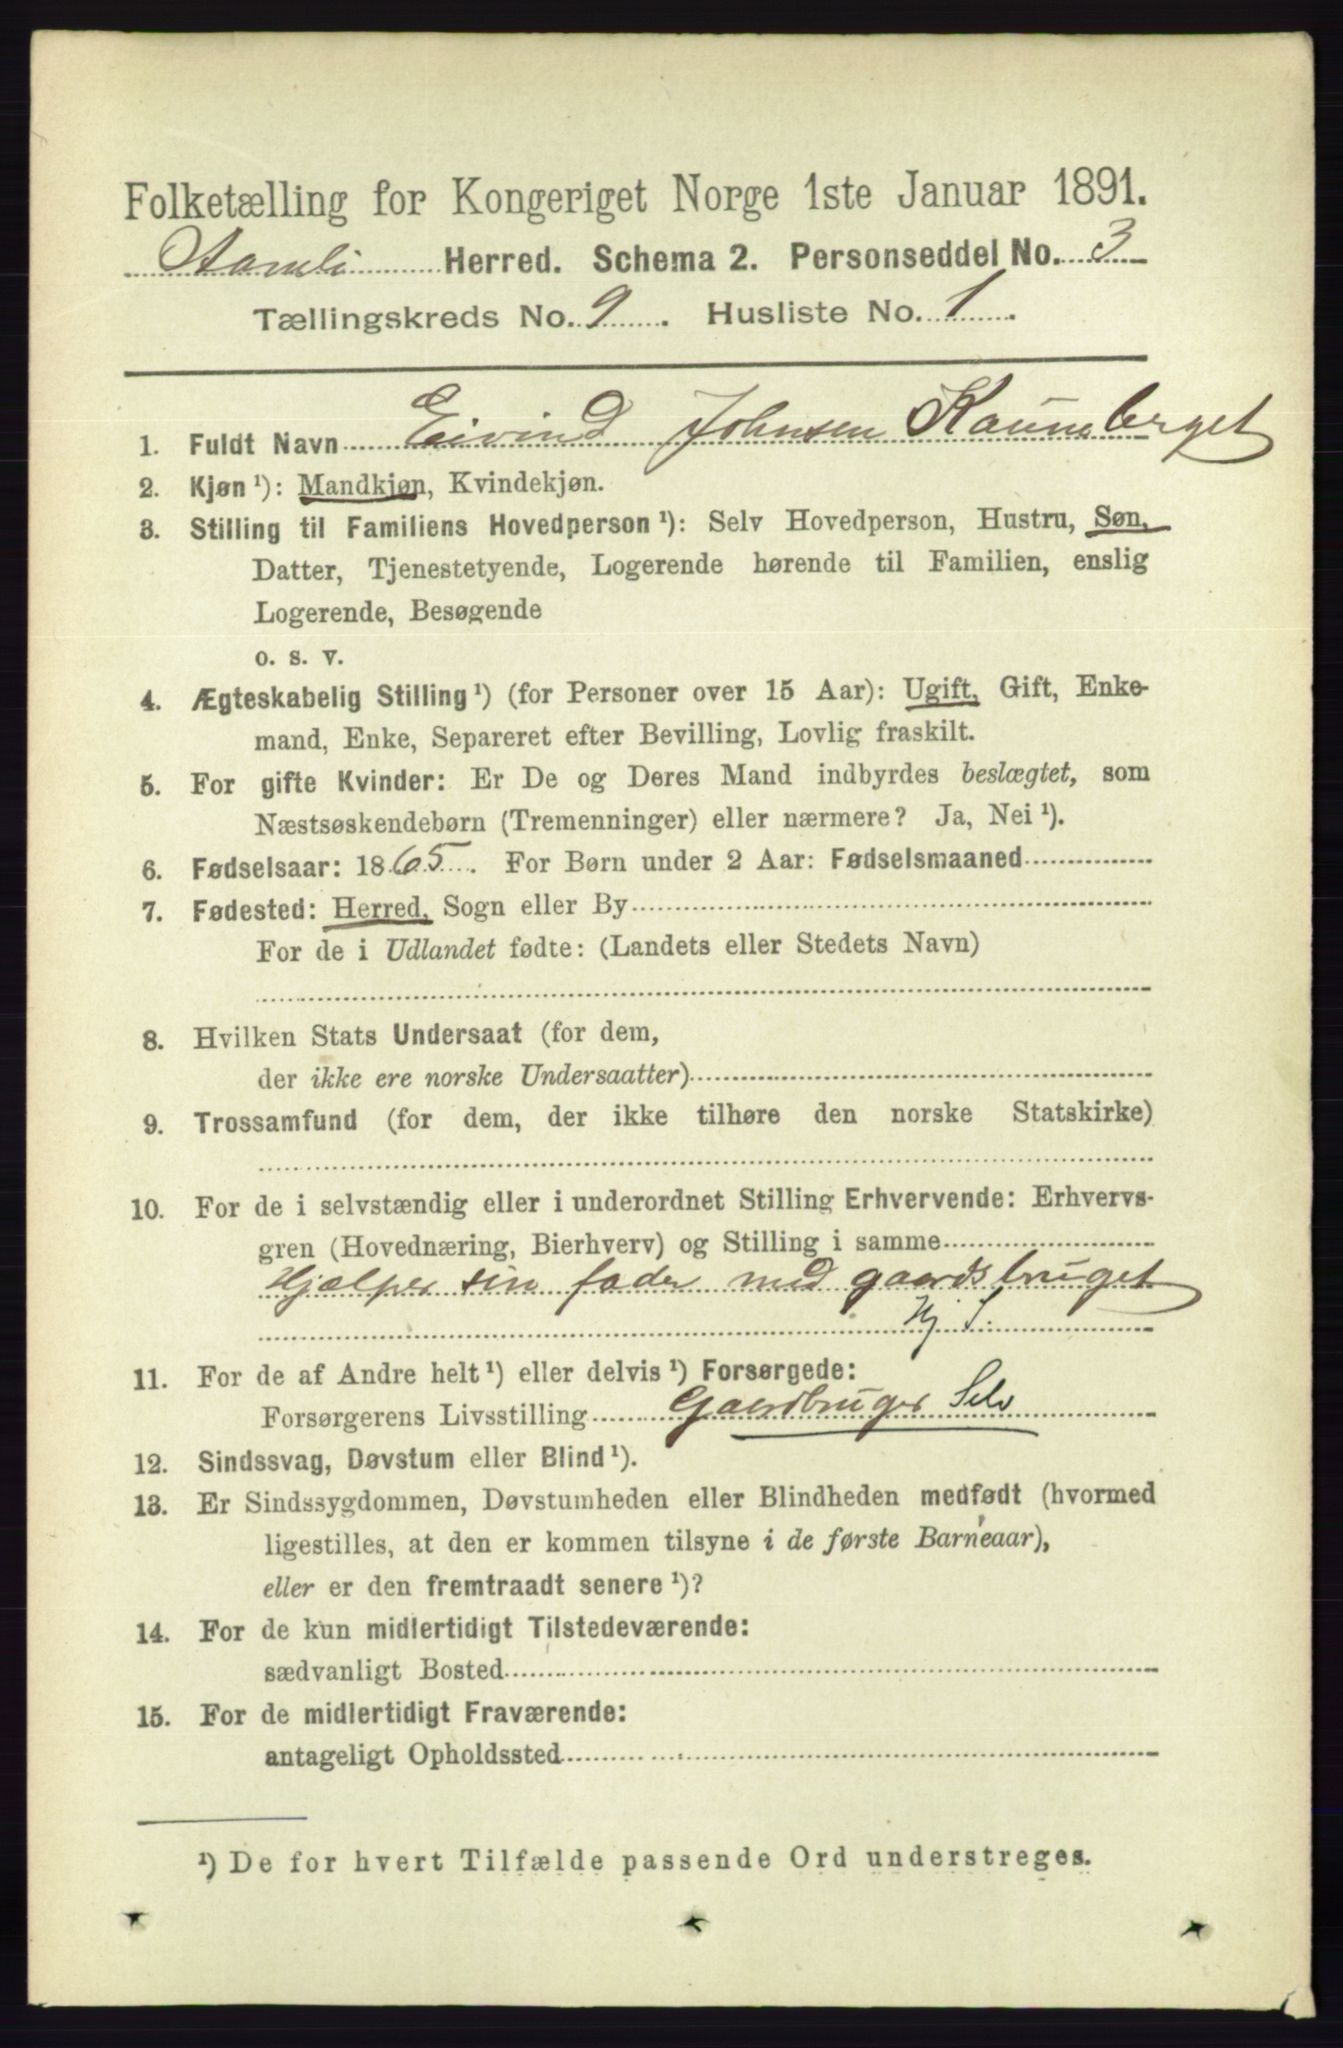 Folketælling for Kongeriget Norge 1ste Januar 1891.
Aamli Herred. Schema 2. Personseddel No. 3
Tællingskreds No. 9. Husliste No. 1.
1. Fuldt Navn Eivind Johnsen
2. Kjøn ¹): Mandkjøn, Kvindekjøn.
3. Stilling til Familiens Hovedperson ¹): Selv Hovedperson, Hustru, Søn,
Datter, Tjenestetyende, Logerende hørende til Familien, enslig
Logerende, Besøgende
o. s. v.
4. Ægteskabelig Stilling ¹) (for Personer over 15 Aar): Ugift, Gift, Enke-
mand, Enke, Separeret efter Bevilling, Lovlig fraskilt.
5. For gifte Kvinder: Er De og Deres Mand indbyrdes beslægtet, som
Næstsøskendebørn (Tremenninger) eller nærmere? Ja, Nei ¹).
6. Fødselsaar: 1865. For Børn under 2 Aar: Fødselsmaaned
7. Fødested: Herred, Sogn eller By
For de i Udlandet fødte: (Landets eller Stedets Navn)
8. Hvilken Stats Undersaat (for dem,
der ikke ere norske Undersaatter)
9. Trossamfund (for dem, der ikke tilhøre den norske Statskirke)
10. For de i selvstændig eller i underordnet Stilling Erhvervende: Erhvervs-
gren (Hovednæring, Bierhverv) og Stilling i samme
Hjælper sin fader med gaardsbruget
Hj S.
11. For de af Andre helt ¹) eller delvis ¹) Forsørgede:
Forsørgerens Livsstilling Gaardbruger Selv
12. Sindssvag, Døvstum eller Blind ¹).
13. Er Sindssygdommen, Døvstumheden eller Blindheden medfødt (hvormed
ligestilles, at den er kommen tilsyne i de første Barneaar),
eller er den fremtraadt senere ¹)?
14. For de kun midlertidigt Tilstedeværende:
sædvanligt Bosted
15. For de midlertidigt Fraværende:
antageligt Opholdssted
¹) De for hvert Tilfælde passende Ord understreges.